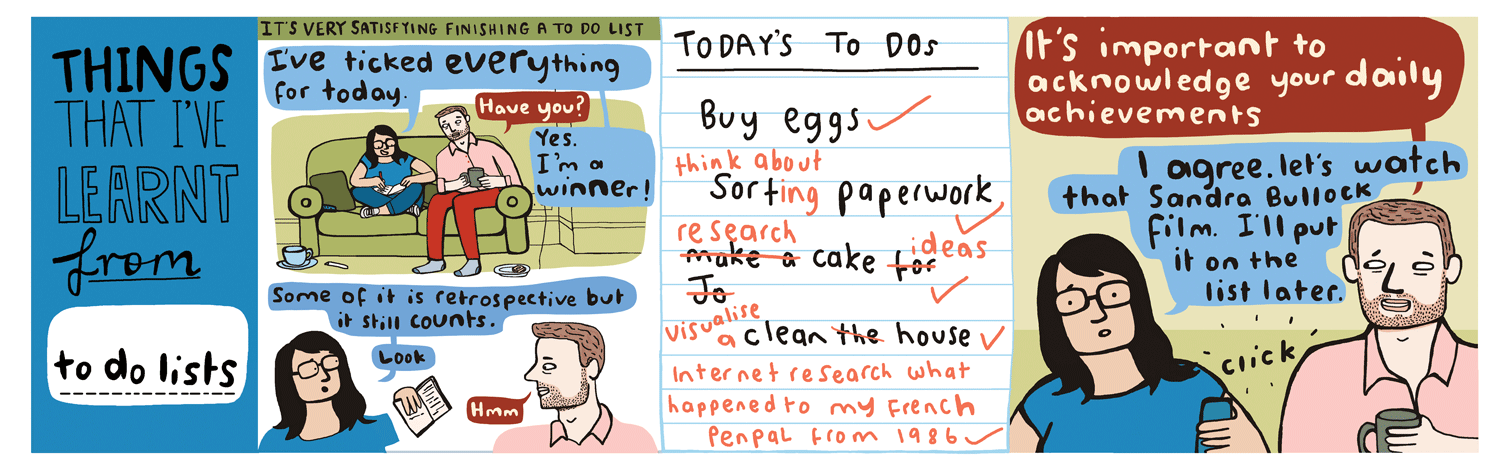 THINGS
THAT I'VE
LEARNT
from
to do lists
IT'S VERY SATISFYING FINISHING A TO DO LIST
I've ticked everything
for today.
Have you?
Yes.
I'm a
winner!
Some of it is retrospective but
it still counts.
Look
Hmm
TODAY'S TO DOs
Buy eggs
think about
Sorting paperwork
research
make a cake for ideas
Jo
visualise
a clean the house
Internet research what
happened to my French
Penpal from 1986
It's important to
acknowledge your daily
achievements
I agree. let's watch
that Sandra Bullock
film. I'll put
it on the
list later.
click